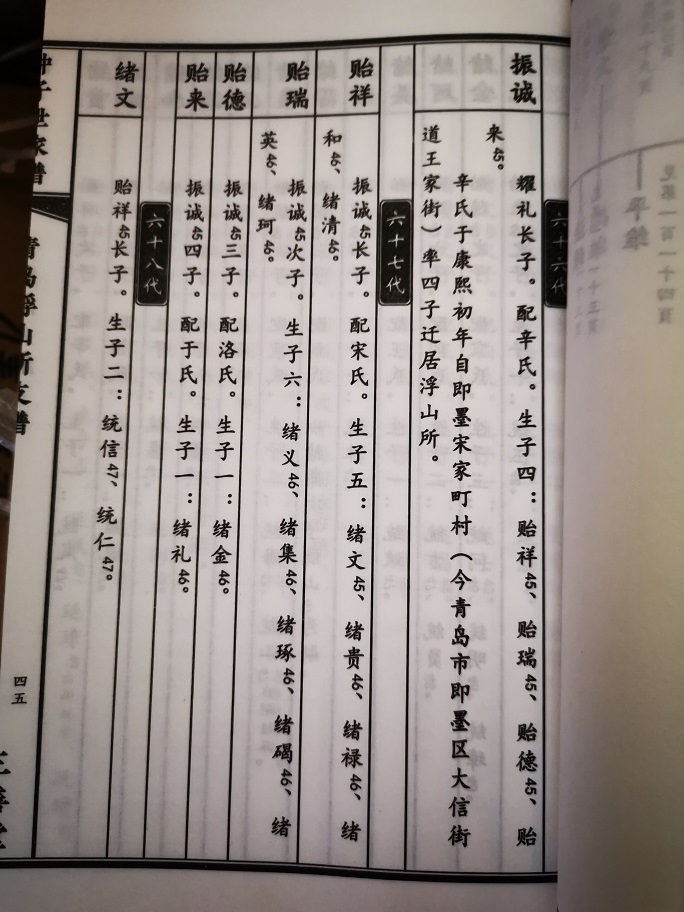 六十六代
振诚
耀礼长子。配辛氏。生子四：贻祥45、贻瑞45、贻德45、贻
来45。
辛氏于康熙初年自即墨宋家町村（今青岛市即墨区大信街
道王家街）率四子迁居浮山所。
六十七代
贻祥
振诚45长子。配宋氏。生子五：绪文46、绪贵46、绪禄46、绪
和46、绪清46。
贻瑞
振诚45次子。生子六：绪义46、绪集46、绪琢46、绪碣46、绪
英46、绪珂46。
贻德
振诚45三子。配洛氏。生子一：绪金46。
贻来
振诚45四子。配于氏。生子一：绪礼46。
六十八代
绪文
贻祥45长子。生子二：统信47、统仁47。
仲子世家谱
青岛浮山所支谱
四五
见第一百一十四页